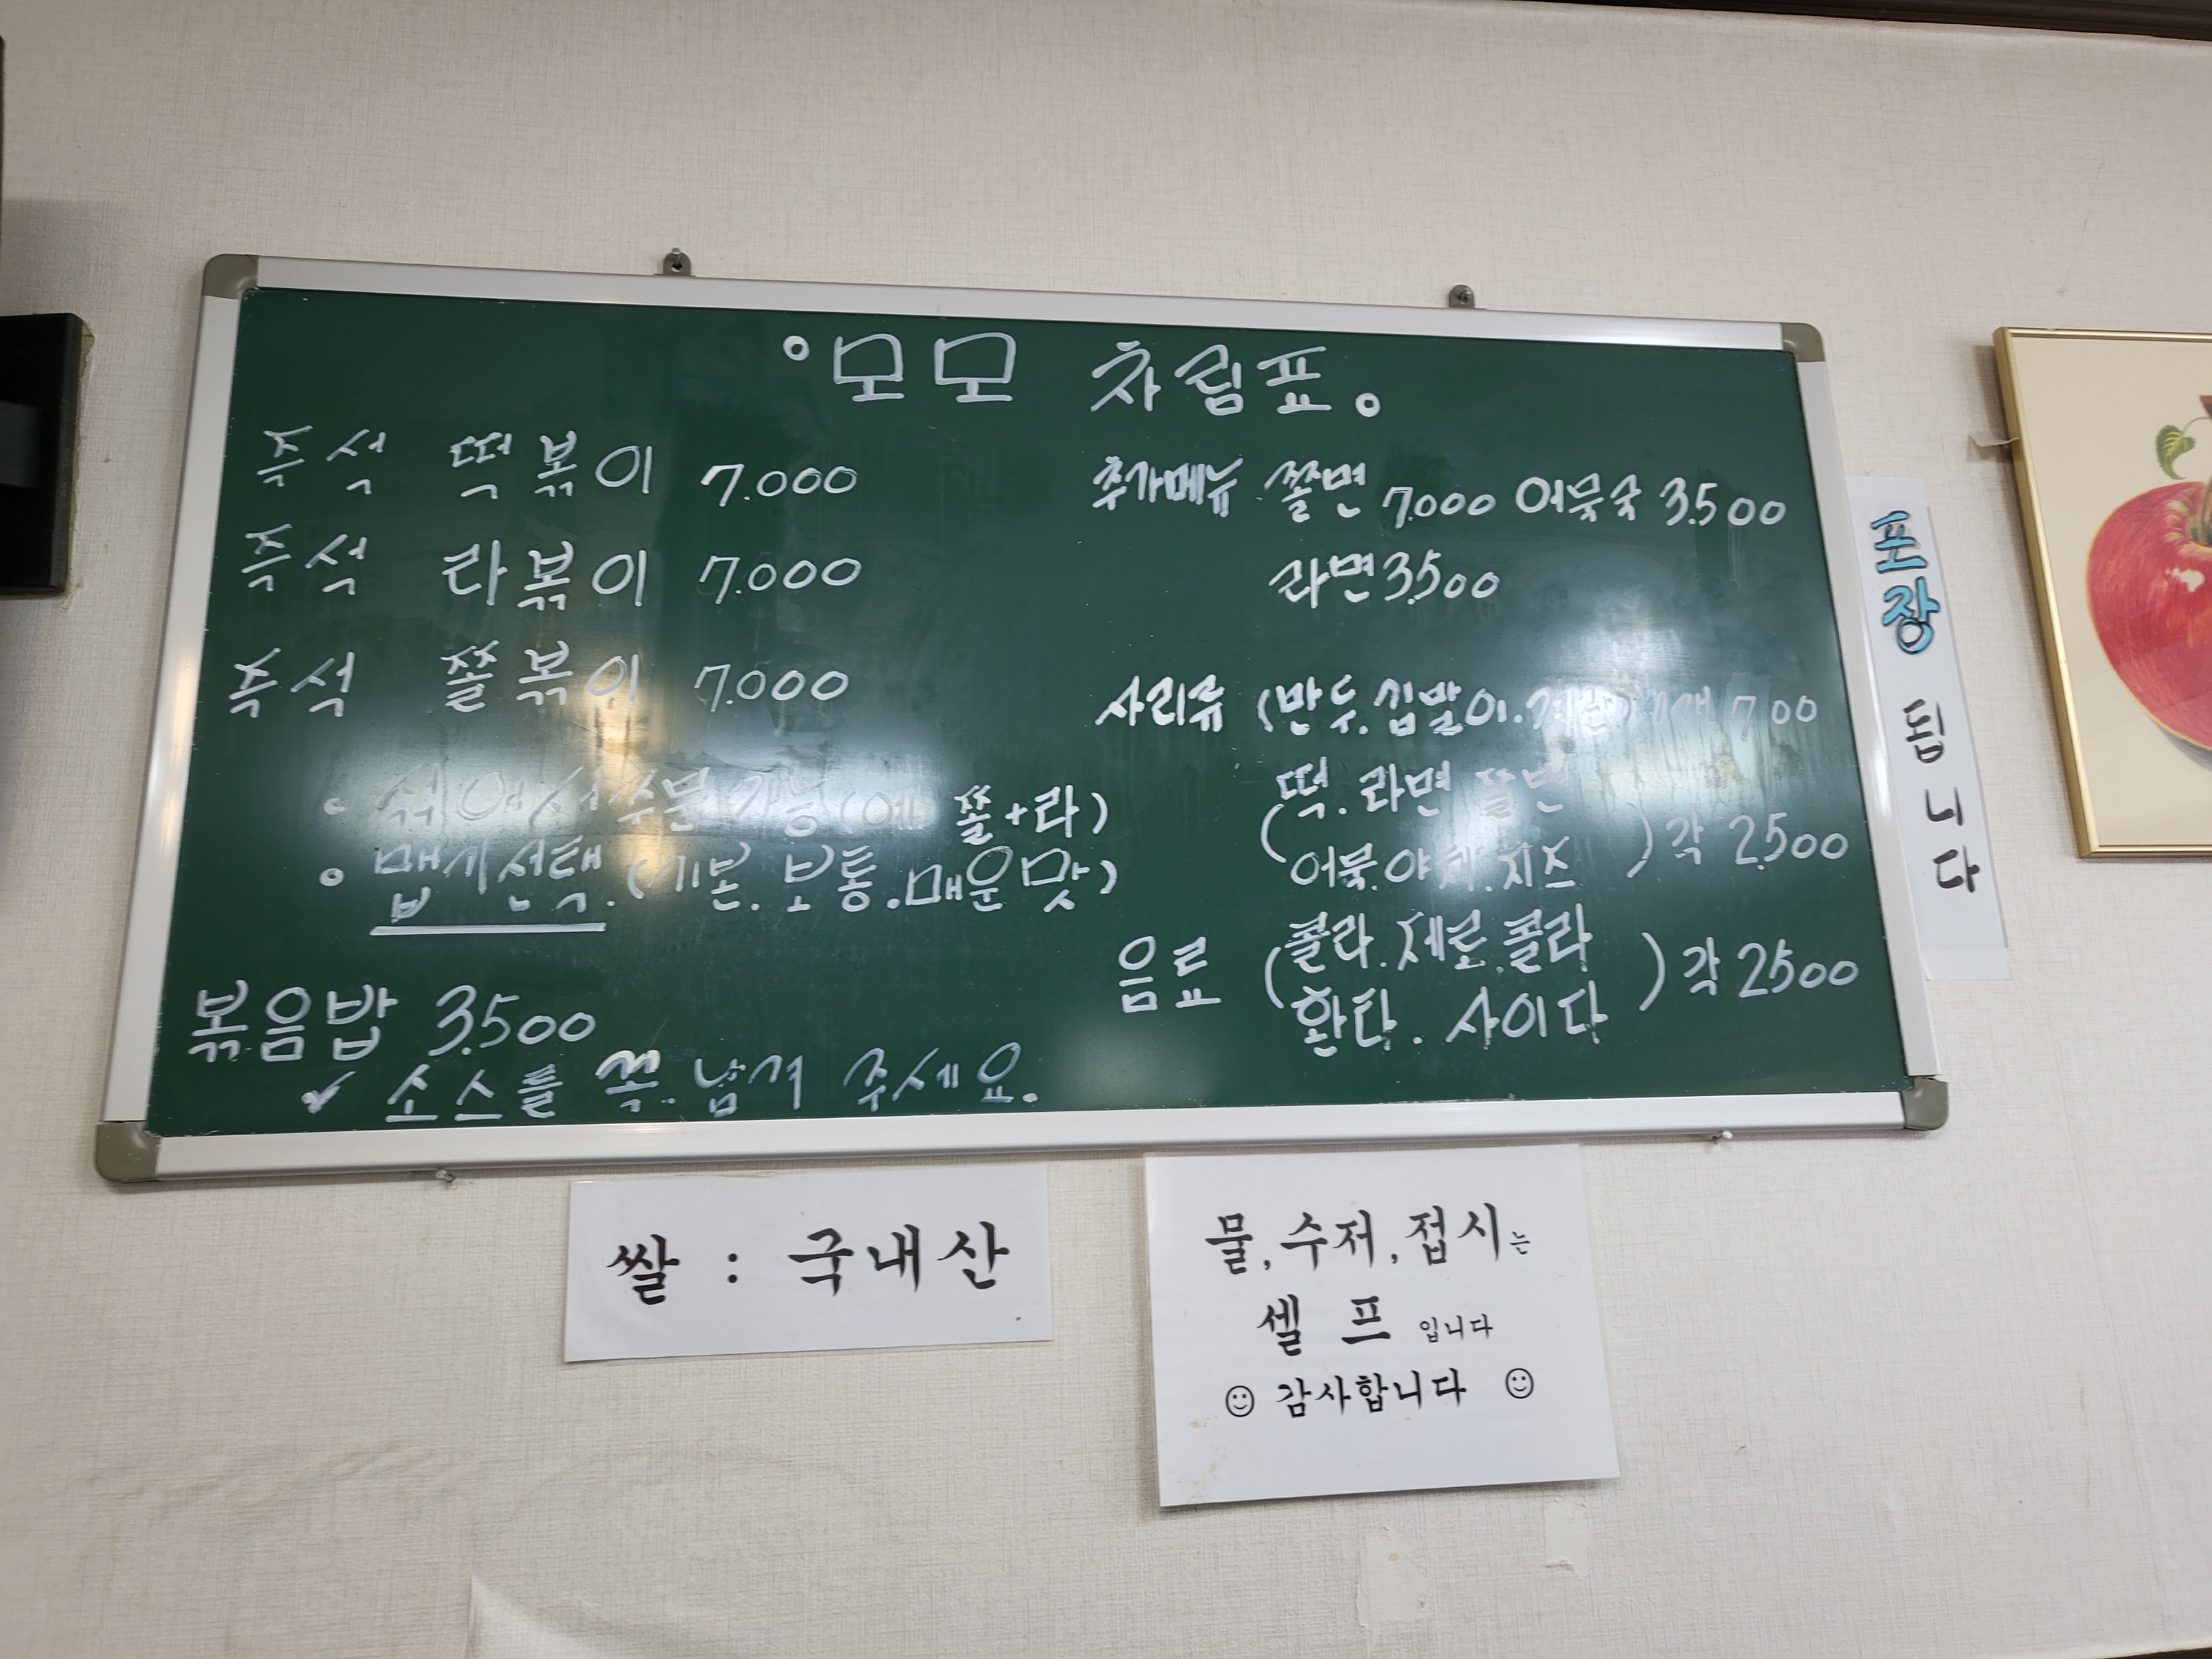 °모모 차림표。
즉석 떡볶이 7.000
즉석 라볶이 7.000
즉석 쫄볶이 7.000
∘ 섞어서 주문가능(예 쫄+라)
∘ 맵기선택.(기본.보통.매운맛)
볶음밥 3.500
✓ 소스를 꼭 남겨 주세요.
추가메뉴 쫄면 7.000 어묵국 3.500
라면 3.500
사리류 (만두.김말이.계란)1개 700
(떡.라면 쫄면
어묵.야채.치즈) 각 2.500
음료 (콜라.제로.콜라
환타. 사이다) 각 2500
포장 됩니다
쌀 : 국내산
물,수저,접시는
셀 프 입니다
☺ 감사합니다 ☺